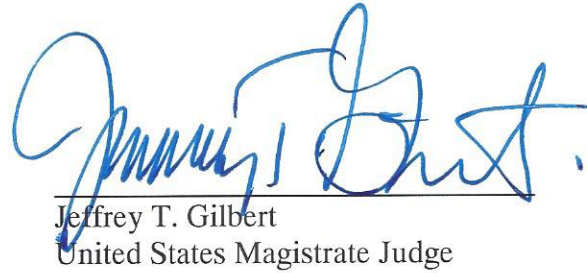 Jeffrey T. Gilbert
United States Magistrate Judge